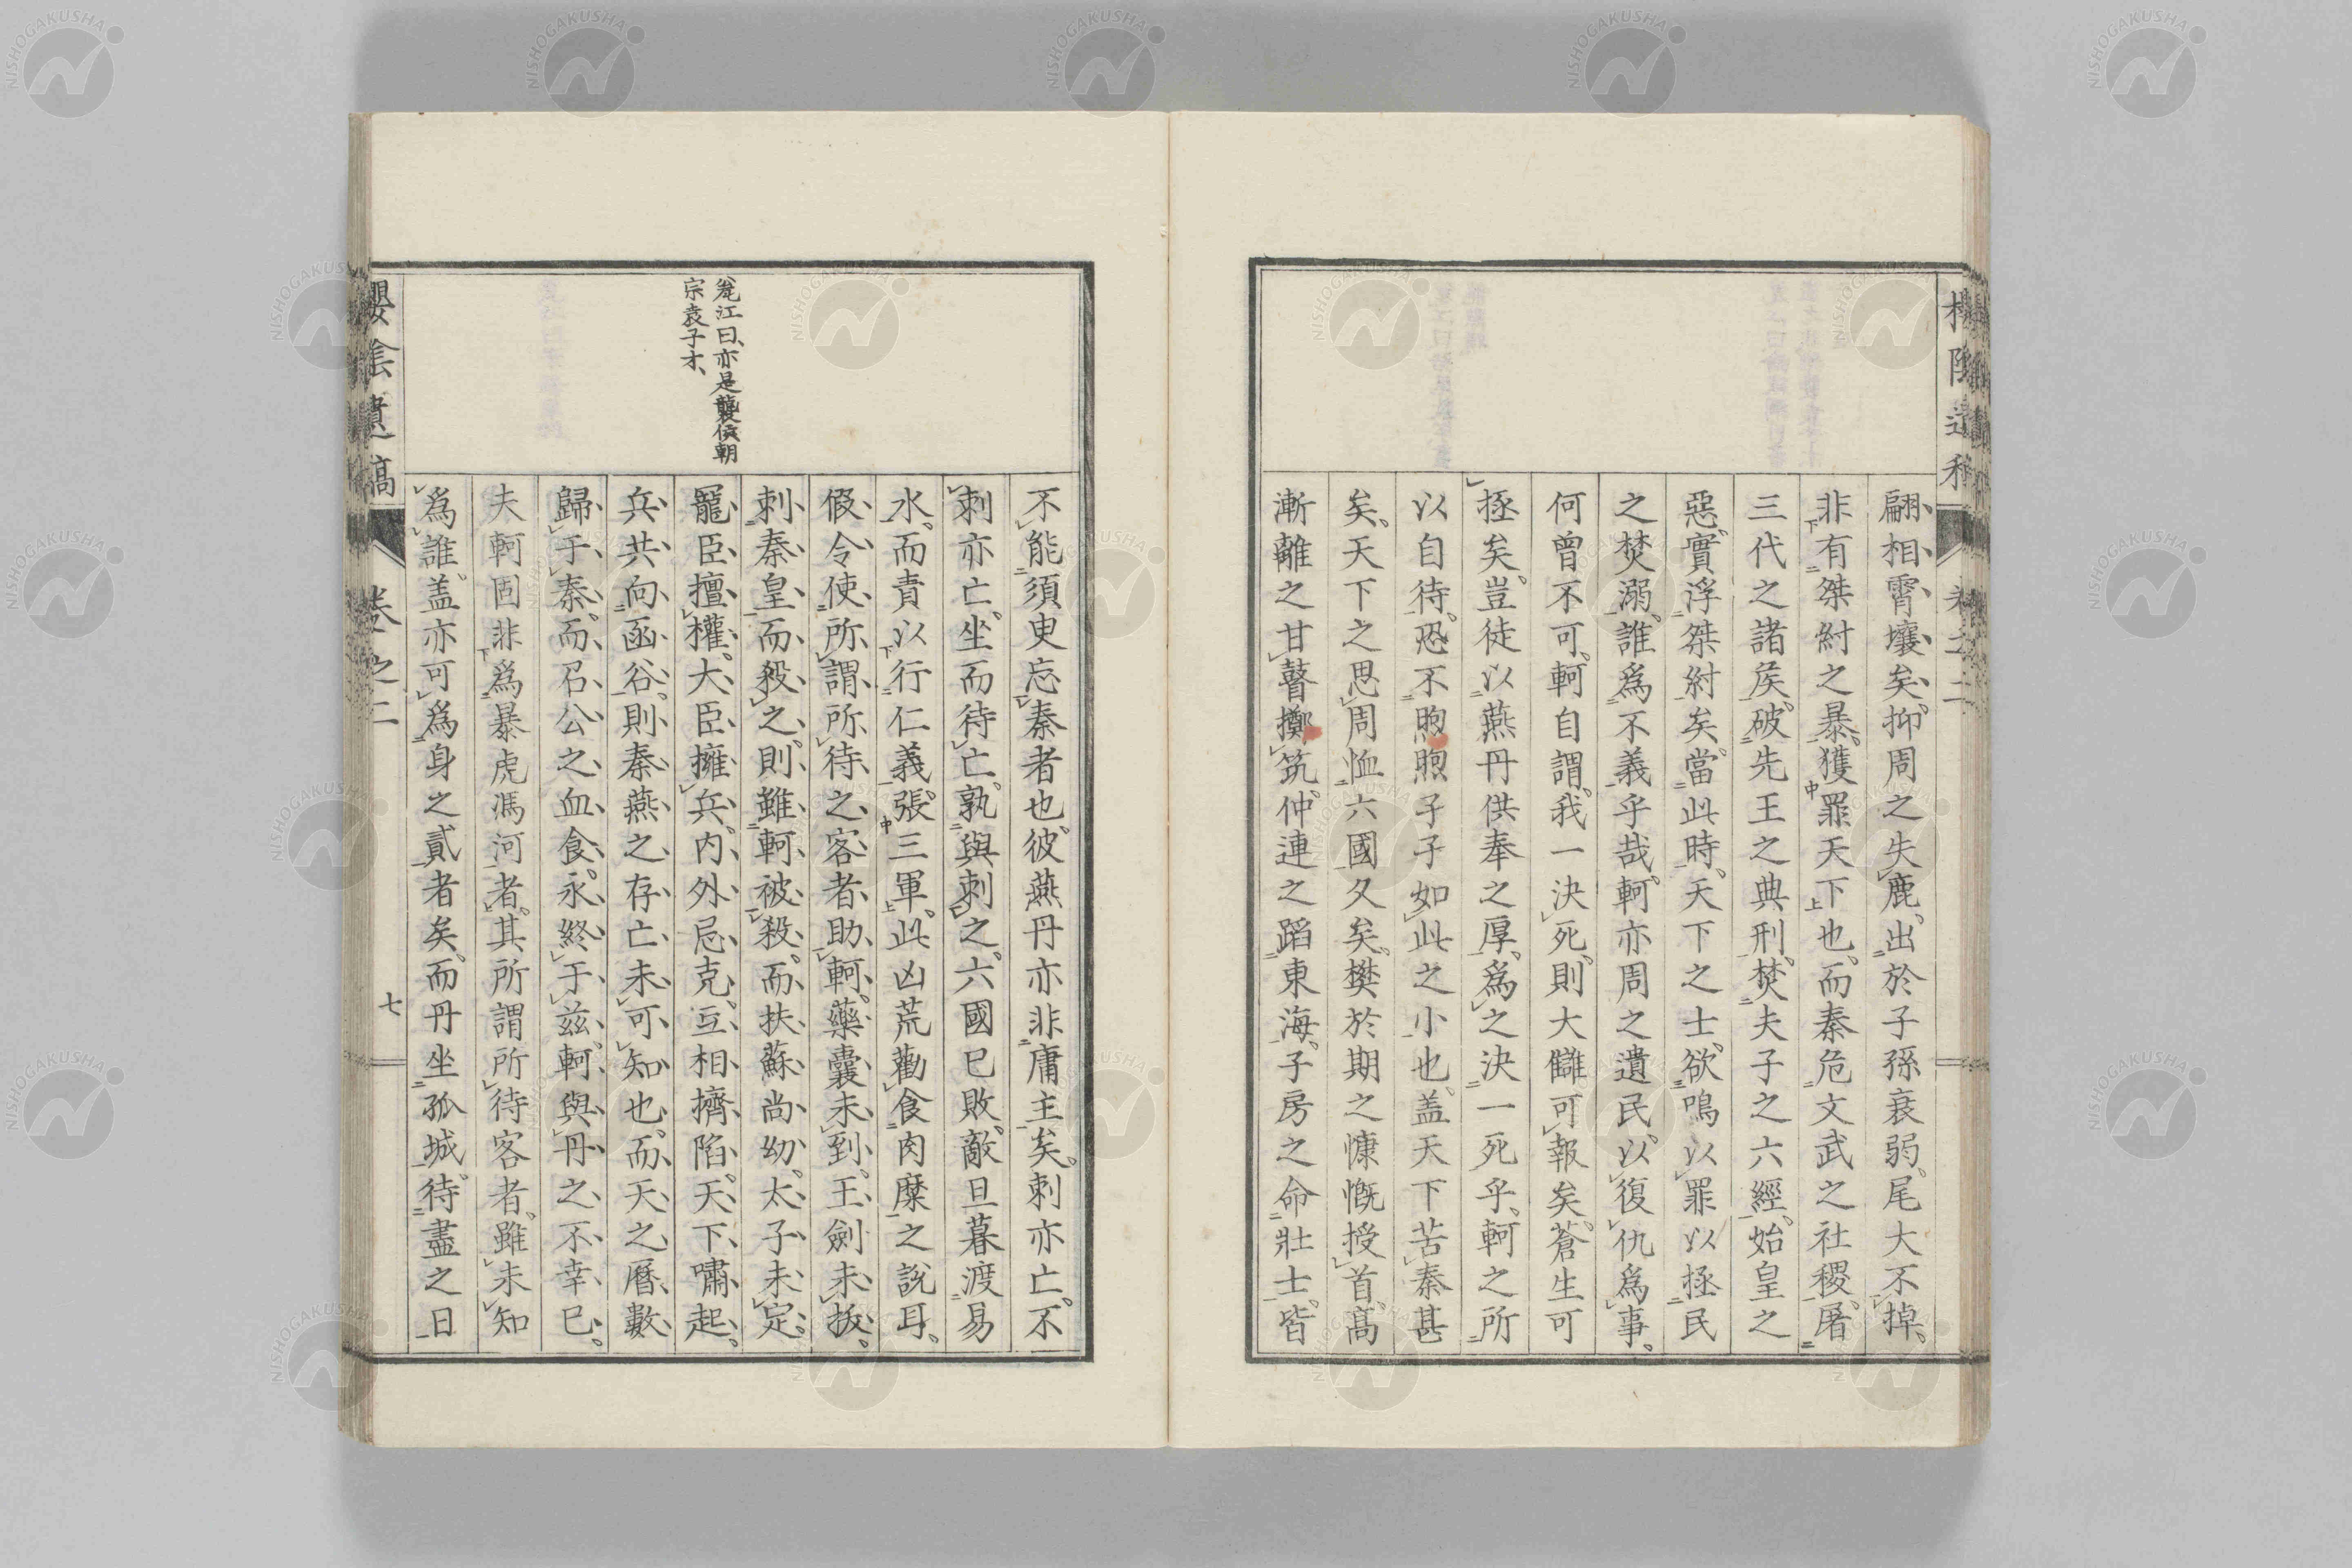 翩相霄壤矣。抑周之失鹿。出於子孫衰弱。尾大不掉、
非有桀紂之暴。獲罪天下也。而秦危文武之社稷。屠
三代之諸侯。破先王之典刑。焚夫子之六經。始皇之
惡。實浮桀紂矣。當此時。天下之士。欲鳴以罪以拯民
之焚溺。誰爲不義乎哉。軻亦周之遺民。以復仇爲事。
何曾不可。軻自謂。我一決死。則大讎可報矣。蒼生可
拯矣。豈徒以燕丹供奉之厚。爲之決一死乎。軻之所
以自待。恐不煦煦孑孑如此之小也。盖天下苦秦甚
矣。天下之思周恤六國久矣。樊於期之慷慨授首。高
漸離之甘瞽擲筑。仲連之蹈東海。子房之命壯士。皆
不能須臾忘秦者也。彼燕丹亦非庸主矣。刺亦亡。不
刺亦亡。坐而待亡。孰與刺之。六國已敗。敵旦暮渡易
水。而責以行仁義。張三軍。此凶荒勸食肉糜之說耳。
假令使所謂所待之客者助軻。藥囊未到。王劍未拔。
刺秦皇而殺之。則雖軻被殺。而扶蘇尚幼。太子未定。
寵臣擅權。大臣擁兵。内外忌克。互相擠陷。天下嘯起。
兵共向函谷。則秦燕之存亡未可知也。而天之曆數
歸于秦。而召公之血食。永終于茲。軻與丹之不幸已。
夫軻固非爲暴虎馮河者。其所謂所待客者。雖未知
爲誰。盖亦可爲身之貳者矣。而丹坐孤城。待盡之日
江曰、亦是襲侯朝
宗袁子才、
櫻陰遺稿
卷之二
七
卷之二
NISHOGAKUSHA